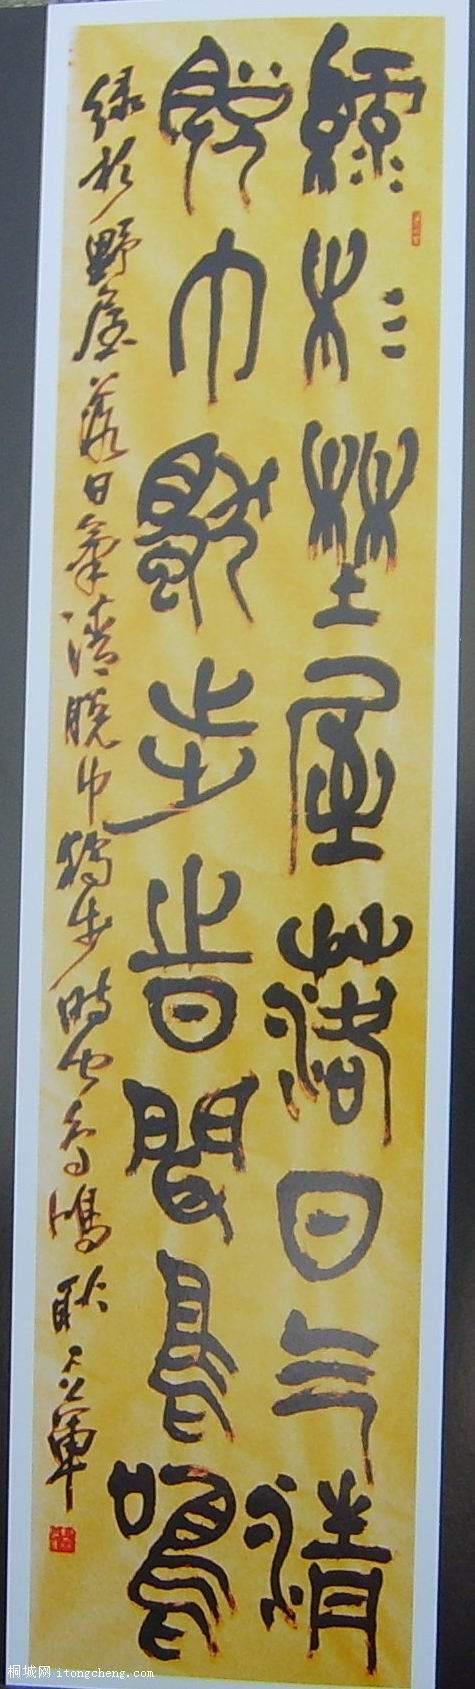 綠杉埜屋落日气清
脱巾獨步時聞鳥鳴
绿杉野屋落日氣清脱巾獨步時聞鳥鳴 耿
桐城网 itongcheng.com